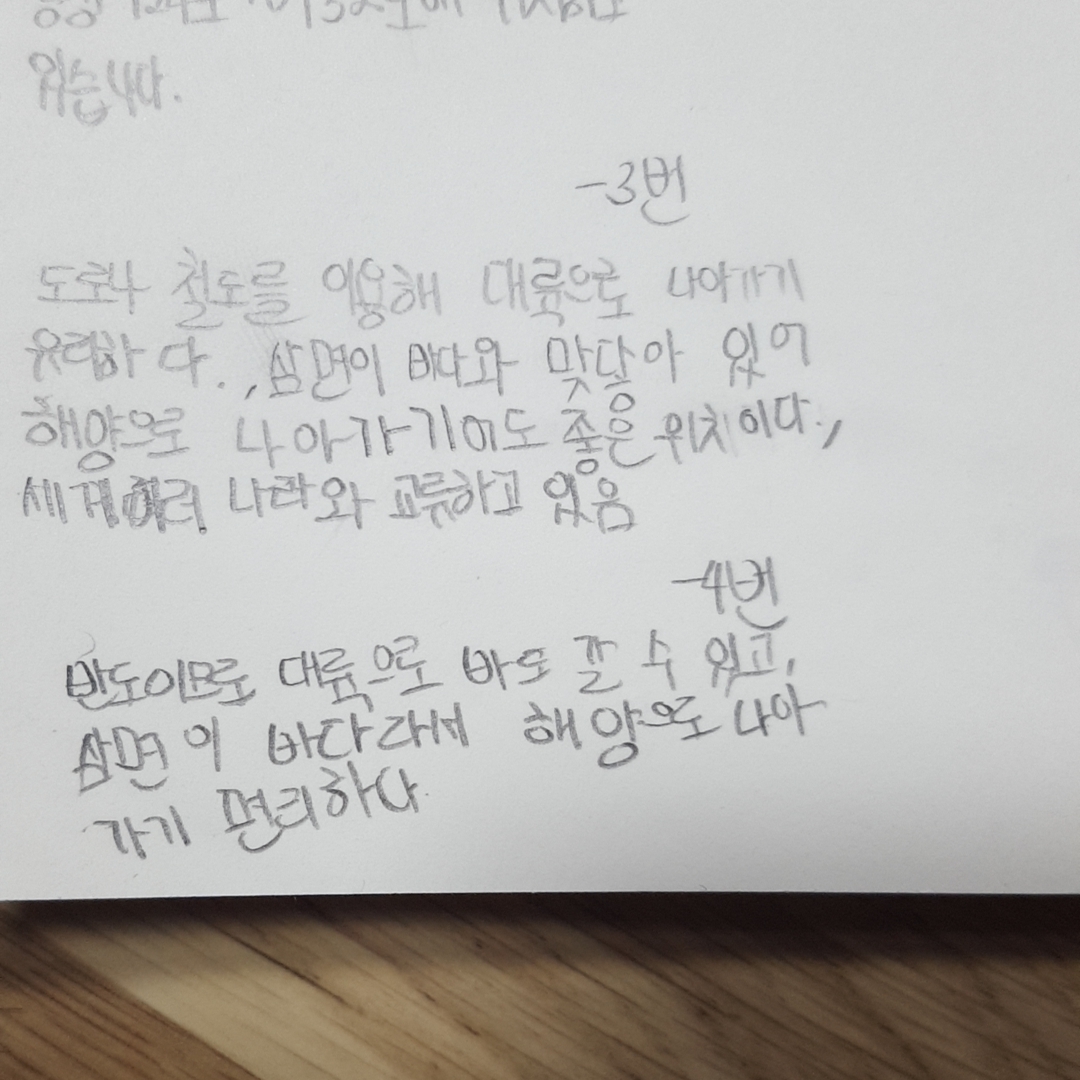 있습니다.
-3번
도로나 철도를 이용해 대륙으로 나아가기
유리하다., 삼면이 바다와 맞닿아 있어
해양으로 나아가기에도 좋은 위치이다.,
세계여러 나라와 교류하고 있음
-4번
반도이므로 대륙으로 바도 갈 수 있고,
삼면이 바다라서 해양으로 나아
가기 편리하다